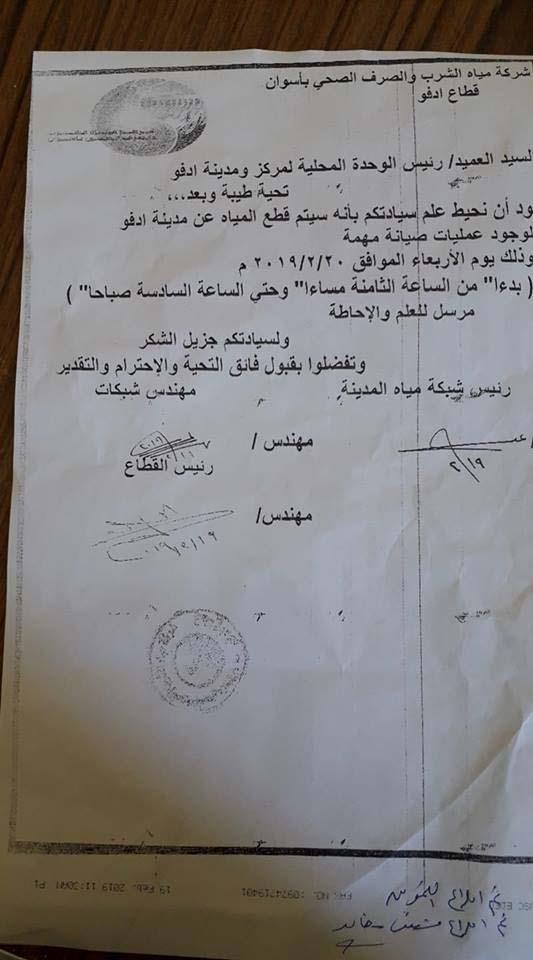 شركة مياه الشرب والصرف الصحي بأسوان
قطاع ادفو
لسيد العميد/ رئيس الوحدة المحلية لمركز ومدينة ادفو
تحية طيبة وبعد،،،
ود أن نحيط علم سيادتكم بأنه سيتم قطع المياه عن مدينة ادفو
لوجود عمليات صيانة مهمة
وذلك يوم الأربعاء الموافق ٢٠١٩/٢/٢٠ م
( بدءا" من الساعة الثامنة مساءا" وحتي الساعة السادسة صباحا" )
مرسل للعلم والإحاطة
ولسيادتكم جزيل الشكر
وتفضلوا بقبول فائق التحية والإحترام والتقدير
رئيس شبكة مياه المدينة
مهندس شبكات
مهندس /
٢/١٩
رئيس القطاع
مهندس/
19 Feb. 2019 11:30AM P1
FAX NO. :0974719401
تم ابلاغ
تم ابلاغ